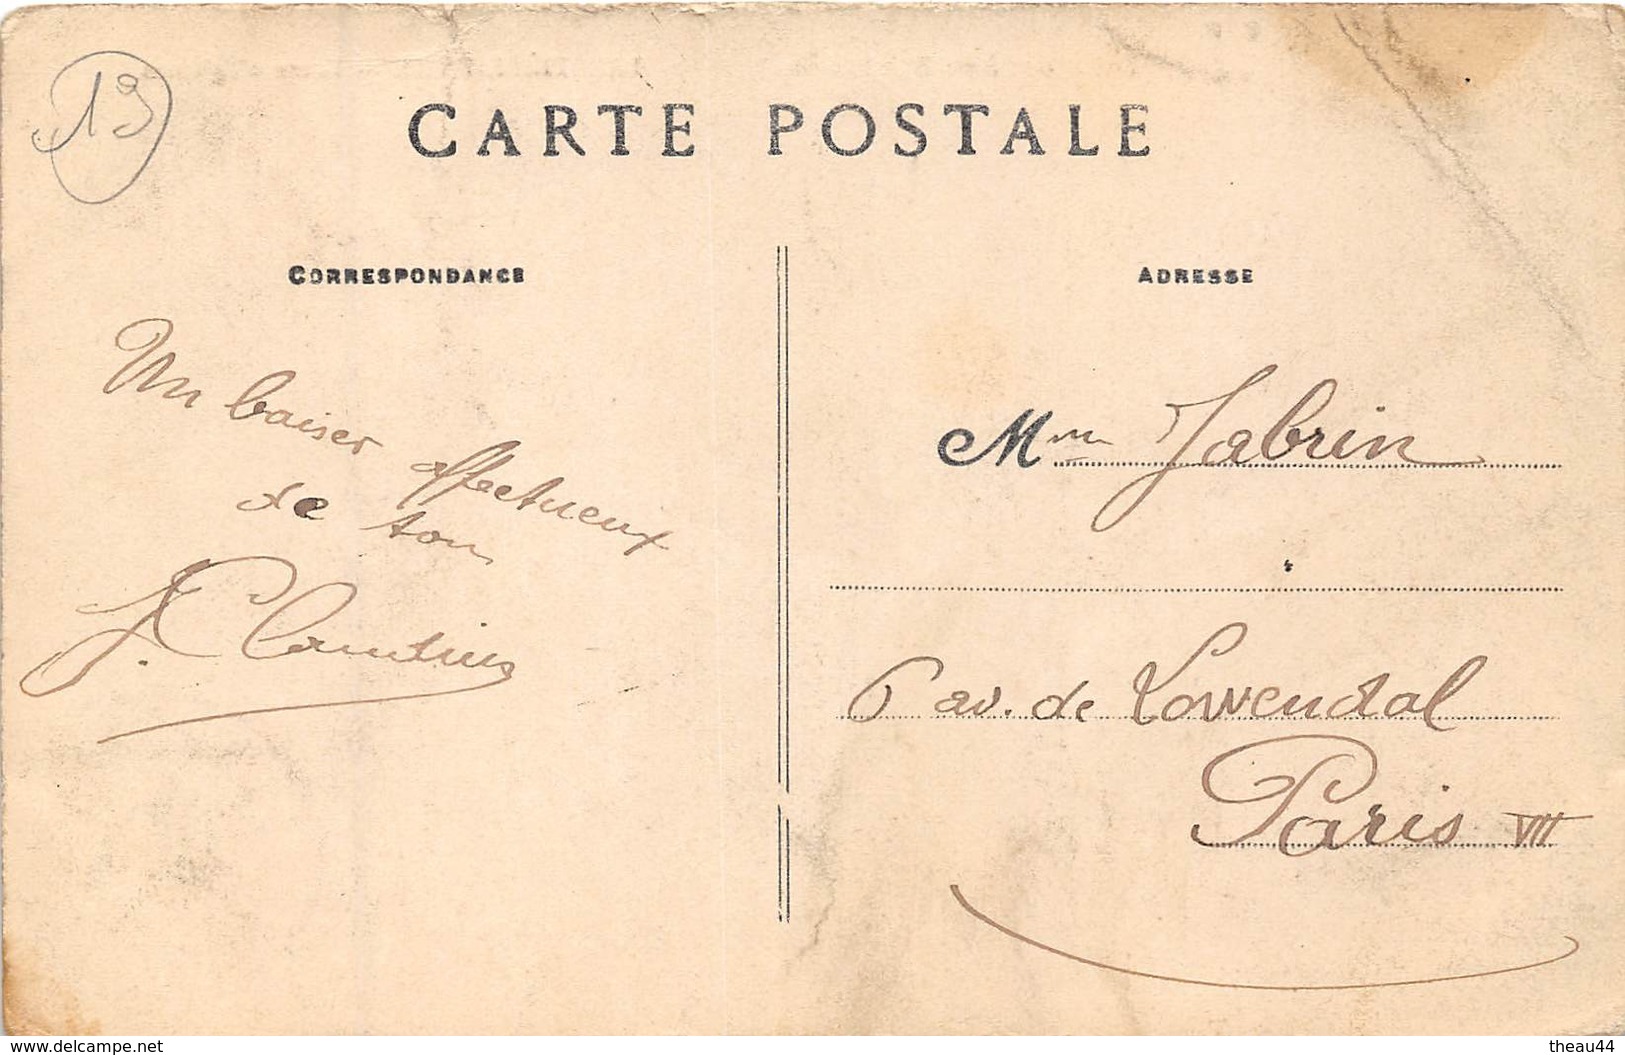 19
CARTE POSTALE
CORRESPONDANCE
Un baiser affectueux
de ton
J. Claudius
ADRESSE
Mme Jabrin
6 av. de Lowendal
Paris VII
www.delcampe.net
theau44